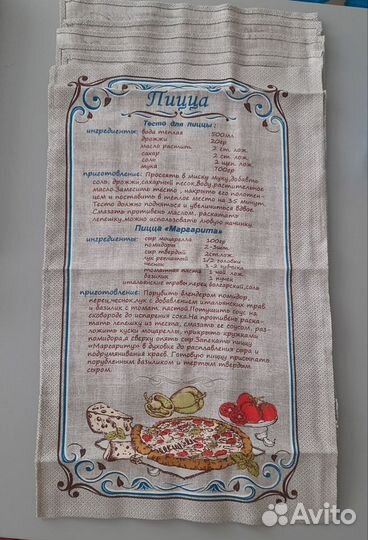 Пицца
Тесто для пиццы:
ингредиенты: вода теплая 500мл
дрожжи 20гр
масло растит. 2 ст. лож.
сахар 2 ст. лож.
соль 2 щеп. лож.
мука 700гр
приготовление: Просеять в миску муку, добавть
соль, дрожжи, сахарный песок, воду, растительное
масло. Замесите тесто, накрыть его полотен-
цем и поставить в теплое место на 35 минут.
Тесто должно подняться и увеличиться вдвое.
Смазать противень маслом, раскатать
лепешку, можно использовать любую начинку
Пицца «Маргарита»
ингредиенты: сыр моцарелла 100гр
помидоры 2-3шт
сыр твердый 2ст.лож.
лук репчатый 1/2 головки
чеснок 1-2 зубчика
томатная паста 1 чай. лож.
базилик 1 пучек
итальянские травы перец болгарский, соль
приготовление: Порубить блендером помидор,
перец, чеснок, лук с добавлением итальянских трав
и базилик с томат. пастой. Потушить соус на
сковороде до испарения сока. На противень раска-
тать лепешку из теста, смазать ее соусом, раз-
ложить куски моцареллы, прикрыть кружками
помидора, а сверху опять сыр. Запекать пиццу
«Маргариту» в духовке до расплавления сыра и
подрумянивания краев. Готовую пиццу присыпать
порубленным базиликом и тертым твердым
сыром.
Avito